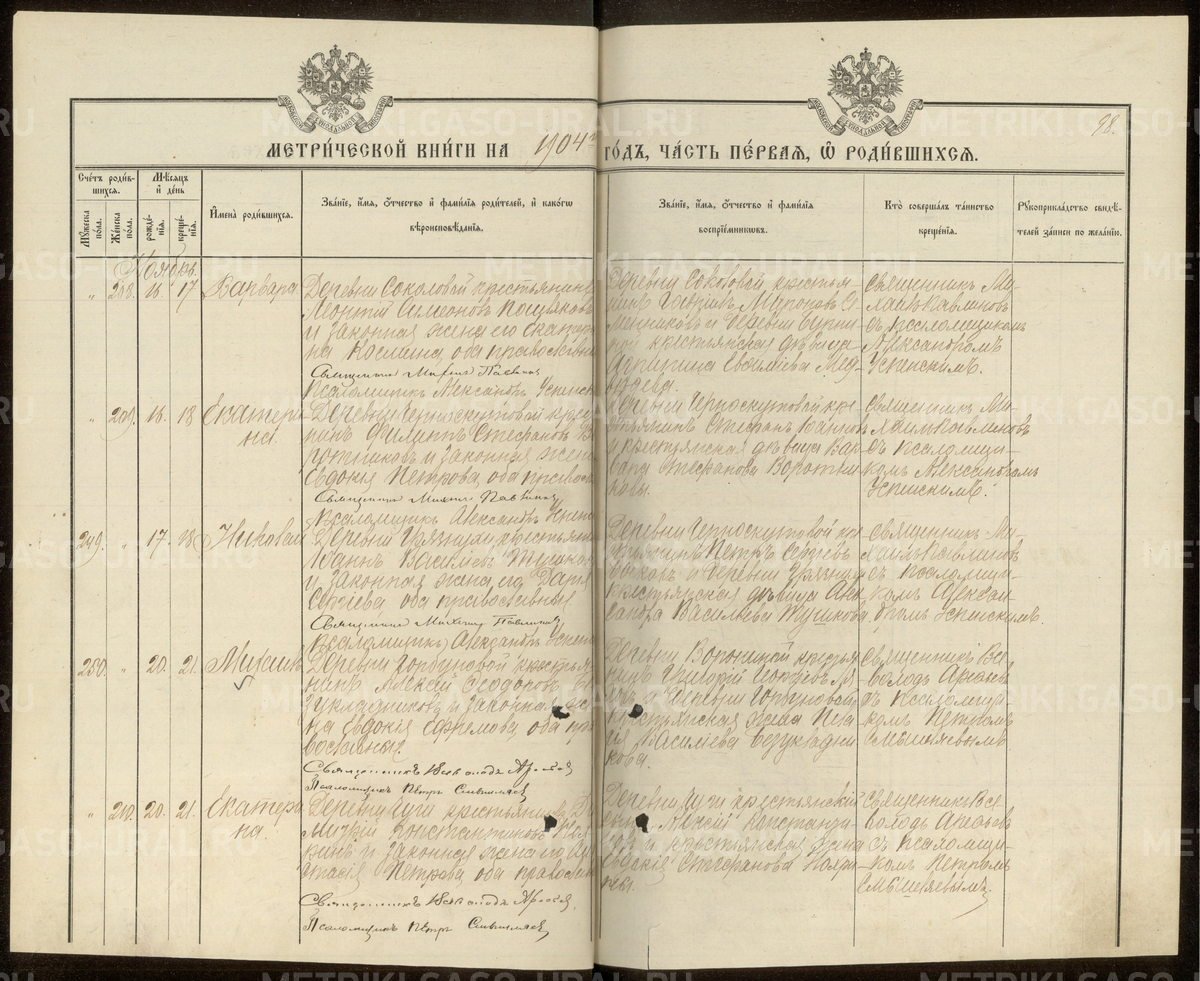 98.
МЕТРИ́ЧЕСКОЙ КНИ́ГИ НА 1904 ГО́ДЪ, ЧА́СТЬ ПЕ́РВАѦ, Ѡ҆ РОДИ́ВШИХСѦ.
Сче́тъ роди́в-
шихсѧ.
Мꙋ́жеска по́ла.
Же́нска по́ла.
Мѣ́сѧцъ и҆ де́нь
рожде́-
нїѧ.
креще́-
нїѧ.
И҆мена̀ роди́вшихсѧ.
Зва́нїе, и҆́мѧ, ѻ҆́тчество и҆ фами́лїѧ роди́телей, и҆ како́гѡ
вѣроисповѣ́данїѧ.
Зва́нїе, и҆́мѧ, ѻ҆́тчество и҆ фами́лїѧ
воспрїе́мникѡвъ.
Кто̀ соверша́лъ та́инство
креще́нїѧ.
Рꙋкоприкла́дство свидѣ́-
телей за́писи по жела́нїю.
Ноябрь.
" 208. 16. 17 Варвара
Деревни Соколовой крестьянинъ
Леонтій Симеоновъ
и законная жена его Екатери
на Космина, оба православны
Священникъ Михаилъ
Псаломщикъ Александръ Успенск
Деревни Соколовой крестья-
нинъ
и деревни
крестьянская дѣвица
Священникъ Ми-
хаилъ Павлиновъ
съ псаломщикомъ
Александромъ
Успенскимъ.
" 209. 16. 18 Екатери
на.
Деревни Черноскутовой крес
нинъ Филиппъ Стефановъ Во
ротниковъ и законная жена
Евдокія Петрова, оба правосл
Священникъ Михаилъ Павлинов
Псаломщикъ Александръ Успен
Деревни Черноскутовой кре-
стьянинъ Стефанъ
и крестьянская дѣвица Вар-
вара Стефанова Воротни
кова.
Священникъ Ми-
хаилъ Павлиновъ
съ псаломщи-
комъ Александромъ
Успенскимъ.
249. " 17. 18 Николай
Деревни Грязнухи крестьян
Іоаннъ Василіевъ Тушков
и законная жена его Дарья
Сергіева оба православныя
Священникъ Михаилъ Павлинов
Псаломщикъ Александръ Успенс
Деревни Черноскутовой кре
стьянинъ Петръ Сергіевъ
и деревни Грязнухи
крестьянская дѣвица Алек
сандра Васильева Тушкова.
Священникъ Ми-
хаилъ Павлиновъ
съ псаломщи-
комъ Алексан-
дромъ Успенскимъ.
250. " 20. 21. Михаилъ
Деревни Горбуновой крестья
нинъ Алексій Ѳеодоровъ Бе
зукладниковъ и законная же
на Евдокія Ефремова, оба пра
вославны.
Священникъ Всеволодъ
Псаломщикъ Петръ
Деревни Ворониной крестья
нинъ Григорій
и деревни Горбуновой
крестьянская жена
Василіева Безукладни
кова.
Священникъ Все-
володъ
съ псаломщи-
комъ Петромъ
" 210. 20. 21. Екатери
на.
Деревни Чуги крестьянинъ Ди
митрій Константиновъ
и законная жена его Ана
стасія Петрова, оба правосла
Священникъ Всеволодъ
Псаломщикъ Петръ
Деревни Чуги крестьянскій
Алексій Константи-
и крестьянская жена
Евдокія Стефанова
Священникъ Все
володъ
съ псаломщи-
комъ Петромъ
METRIKI.GASO-URAL.RU